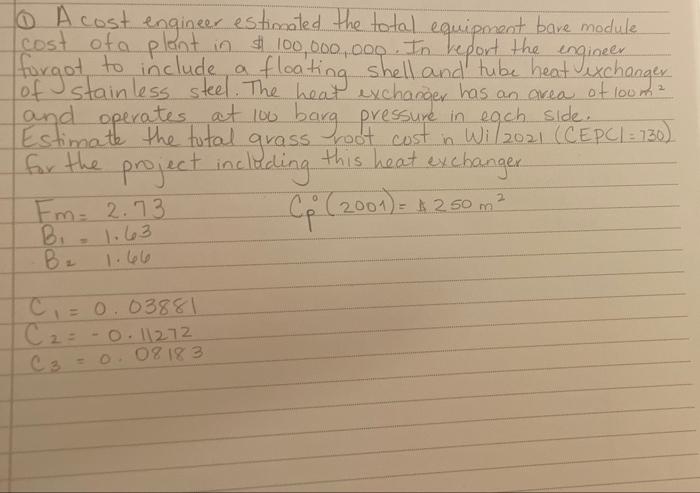 ① A cost engineer estimated the total equipment bare module
cost of a plant in $ 100,000,000. In report the engineer
forgot to include a floating shell and tube heat exchanger
of stainless steel. The heat exchanger has an area of 100m²
and operates at 100 barg pressure in each side.
Estimate the total grass root cost in Wi/2021 (CEPCI = 730)
for the project including this heat exchanger
Fm = 2.73 Cp° (2001) = $ 250 m²
B₁ = 1.63
B₂ 1.66
C₁ = 0.03881
C₂ = -0.11272
C₃ = 0.08183